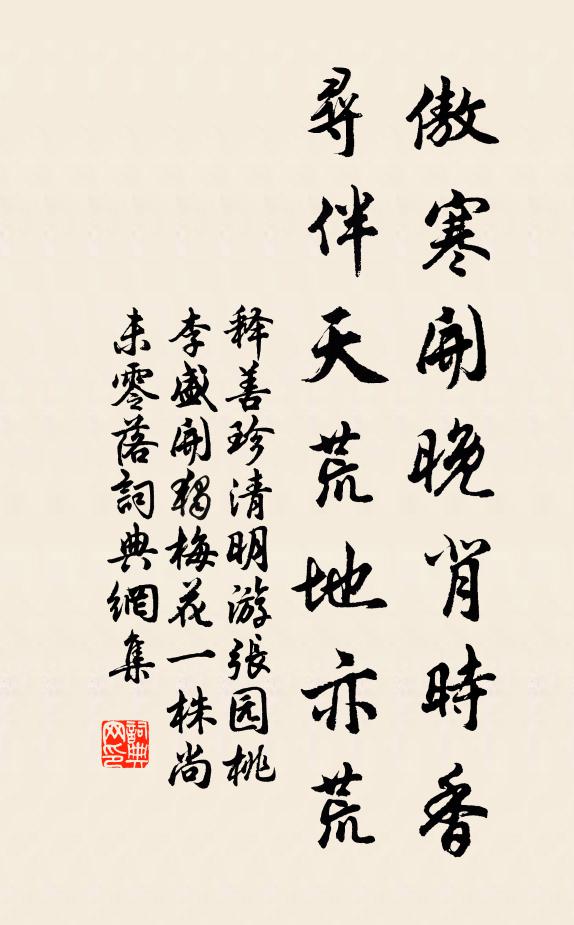 傲寒開晚背時香
尋伴天荒地亦荒
释善珍清明游張园桃
李盛開獨梅花一株尚
未零落詞典網集
詞典网印